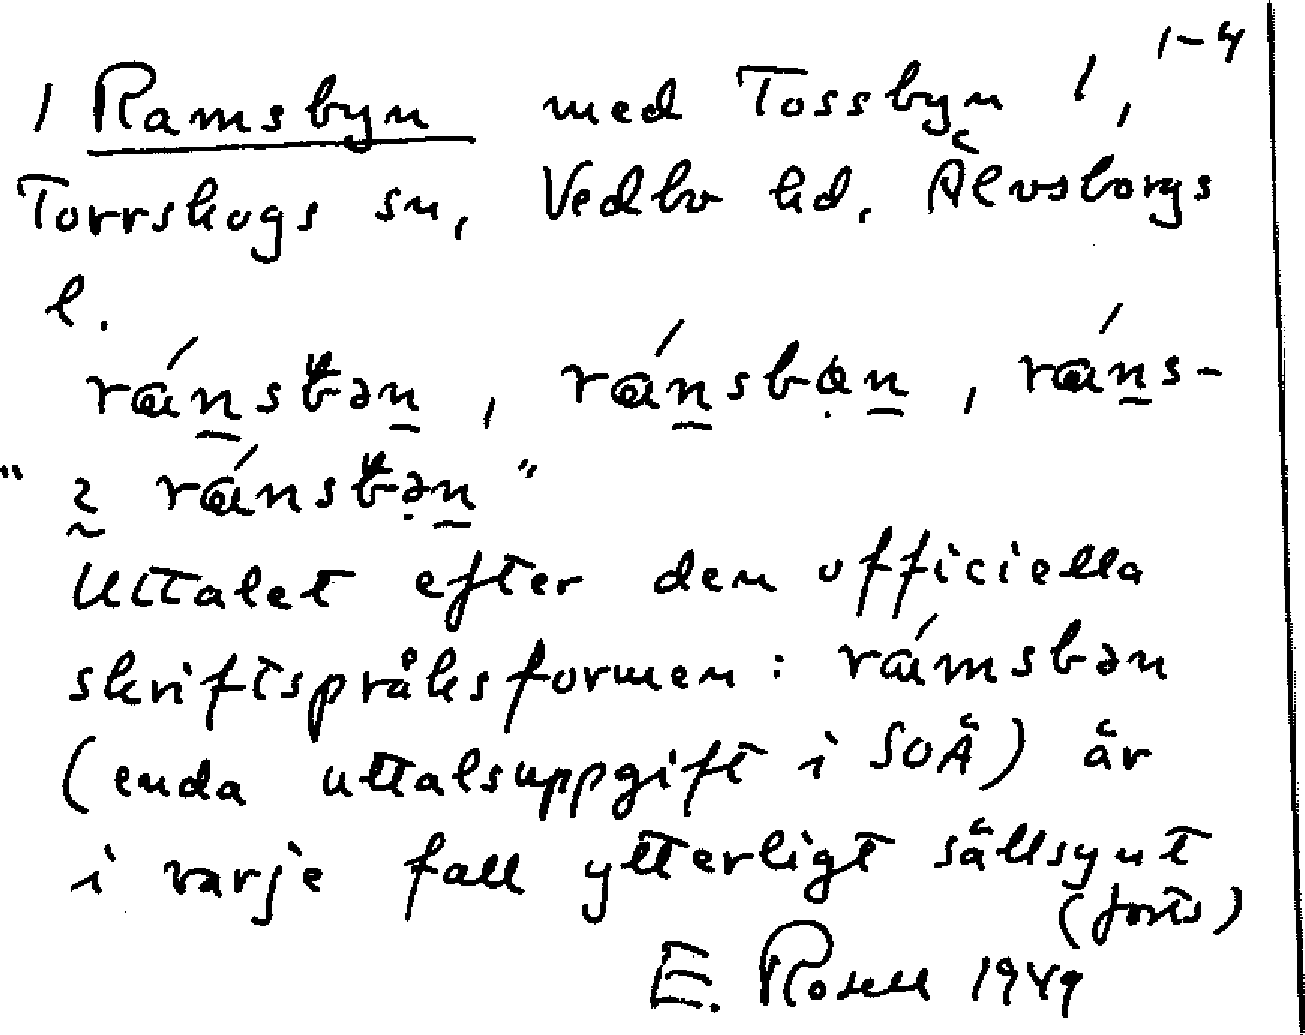 1-4
1 Ramsbyn med Tossbyn 1,
Torrskogs sn, Vedbo hd, Älvsborgs
l.
Uttalet efter den officiella
skriftspråksformen: rámsbən
(enda uttalsuppgift i SOÄ) är
i varje fall ytterligt sällsynt
(forts)
E. Rosell 1949